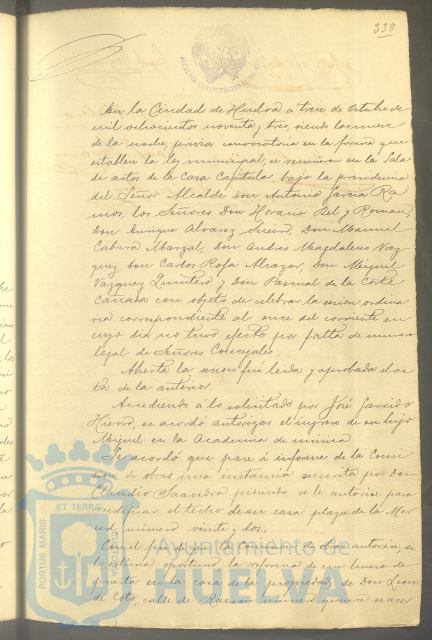 338
ALCALDIA CONSTITUCIONAL DE
En la Ciudad de Huelva a trece de Octubre de
mil ochocientos noventa y tres, siendo las nueve
de la noche, previa convocatoria en la forma que
establece la ley municipal, se reunieron en la Sala
de actos de la Casa Capitular, bajo la presidencia
del Señor Alcalde Don Antonio García Ra
mos, los Señores Don Horacio Bel y Roman,
Don Enrique Alvarez Don Manuel
Marzal, Don Andres Magdaleno Vaz
quez, Don Carlos Rofa Alcazar, Don Miguel
Vazquez Quintero y Don Pascual de la Corte
Cañada con objeto de celebrar la sesion ordina
ria correspondiente al once del corriente en
cuyo dia no tuvo efecto por falta de numero
legal de Señores Concejales.
Abierta la sesion fué leida y aprobada el ac
ta de la anterior.
Accediendo á lo solicitado por José Garrido
Hierro, se acordó autorizar el ingreso de su hijo
Miguel en la Academia de música
Se acordó que pase á informe de la Comi
sion de obras una instancia suscrita por Don
Claudio Saavedra pidiendo se le autorice para
reedificar el techo de su casa plaza de la Mer
ced número veinte y dos.
Con el fin de que la Comision de obras autorice, si
lo estima oportuno, la reforma de un hueco de
puerta en la casa de la propiedad de Don Leon
de Coto, calle de Rascon número quince se acor
PORTUS MARIS ET TERRAE CUSTODIA
Ayuntamiento de
HUELVA